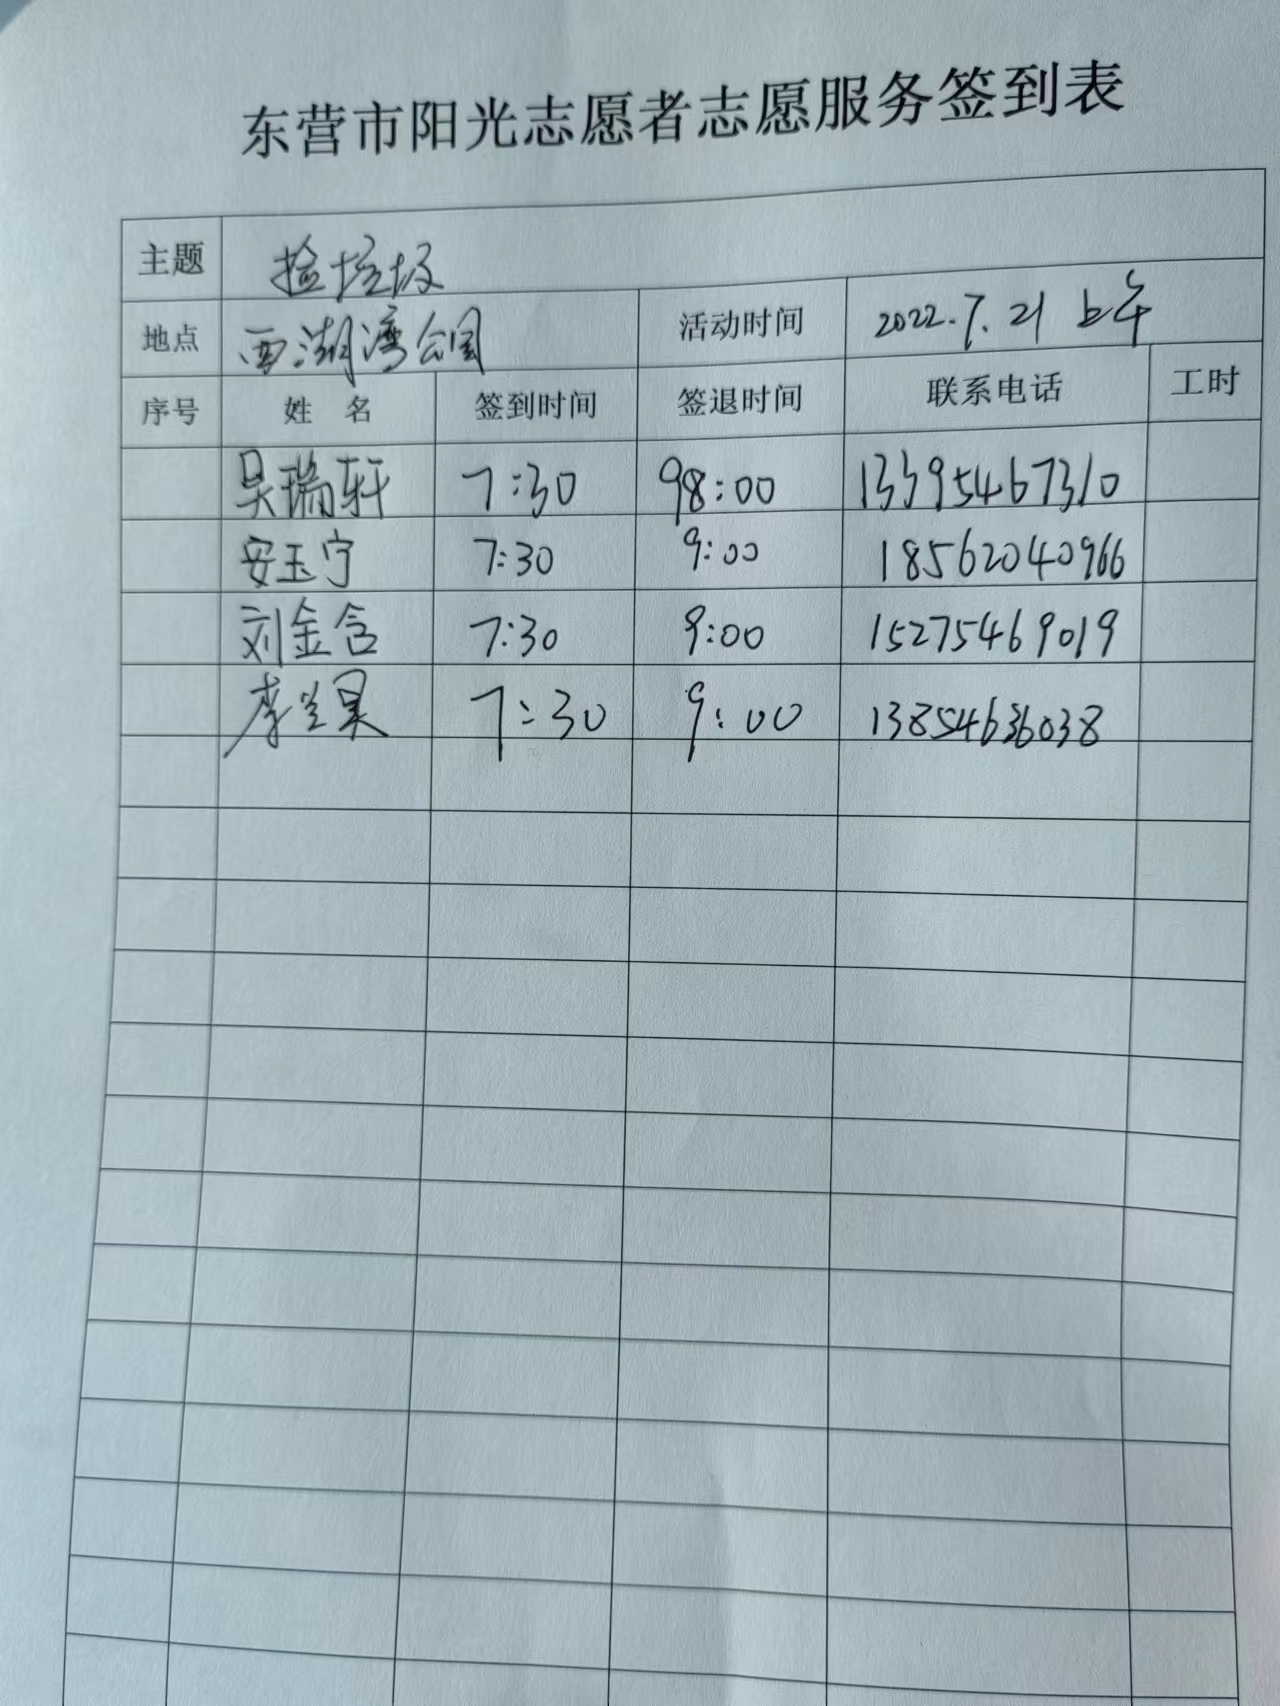 东营市阳光志愿者志愿服务签到表
主题 捡垃圾
地点 西湖湾公园 活动时间 2022.7.21 上午
序号 姓名 签到时间 签退时间 联系电话 工时
吴瑞轩 7:30 98:00 13395467310
安玉宁 7:30 9:00 18562040966
刘金含 7:30 9:00 15275469019
李兰昊 7:30 9:00 13854636038